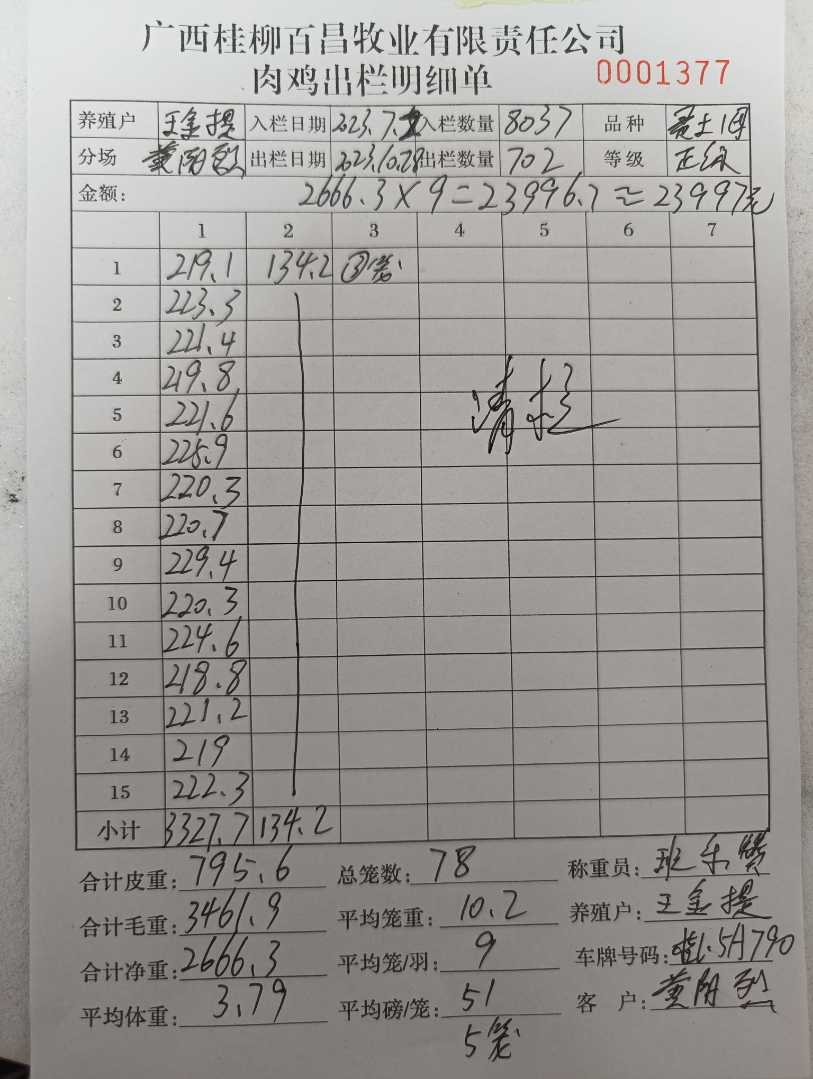 广西桂柳百昌牧业有限责任公司
肉鸡出栏明细单 0001377
养殖户 王金提 入栏日期 2023.7. 入栏数量 8037 品种
分场 黄阴烈 出栏日期 2023.10.29 出栏数量 702 等级 正级
金额: 2666.3×9=23996.7≈23997元
1 2 3 4 5 6 7
1 219.1 134.2 ③笼
2 223.3
3 221.4
4 219.8
5 221.6
6 225.9
7 220.3
8 220.7
9 229.4
10 220.3
11 224.6
12 218.8
13 221.2
14 219
15 222.3
清栏
小计 3327.7 134.2
合计皮重: 795.6 总笼数: 78 称重员: 班
合计毛重: 3461.9 平均笼重: 10.2 养殖户: 王金提
合计净重: 2666.3 平均笼/羽: 9 车牌号码: 桂.5A790
平均体重: 3.79 平均磅/笼: 51 客 户: 黄阴烈
5笼